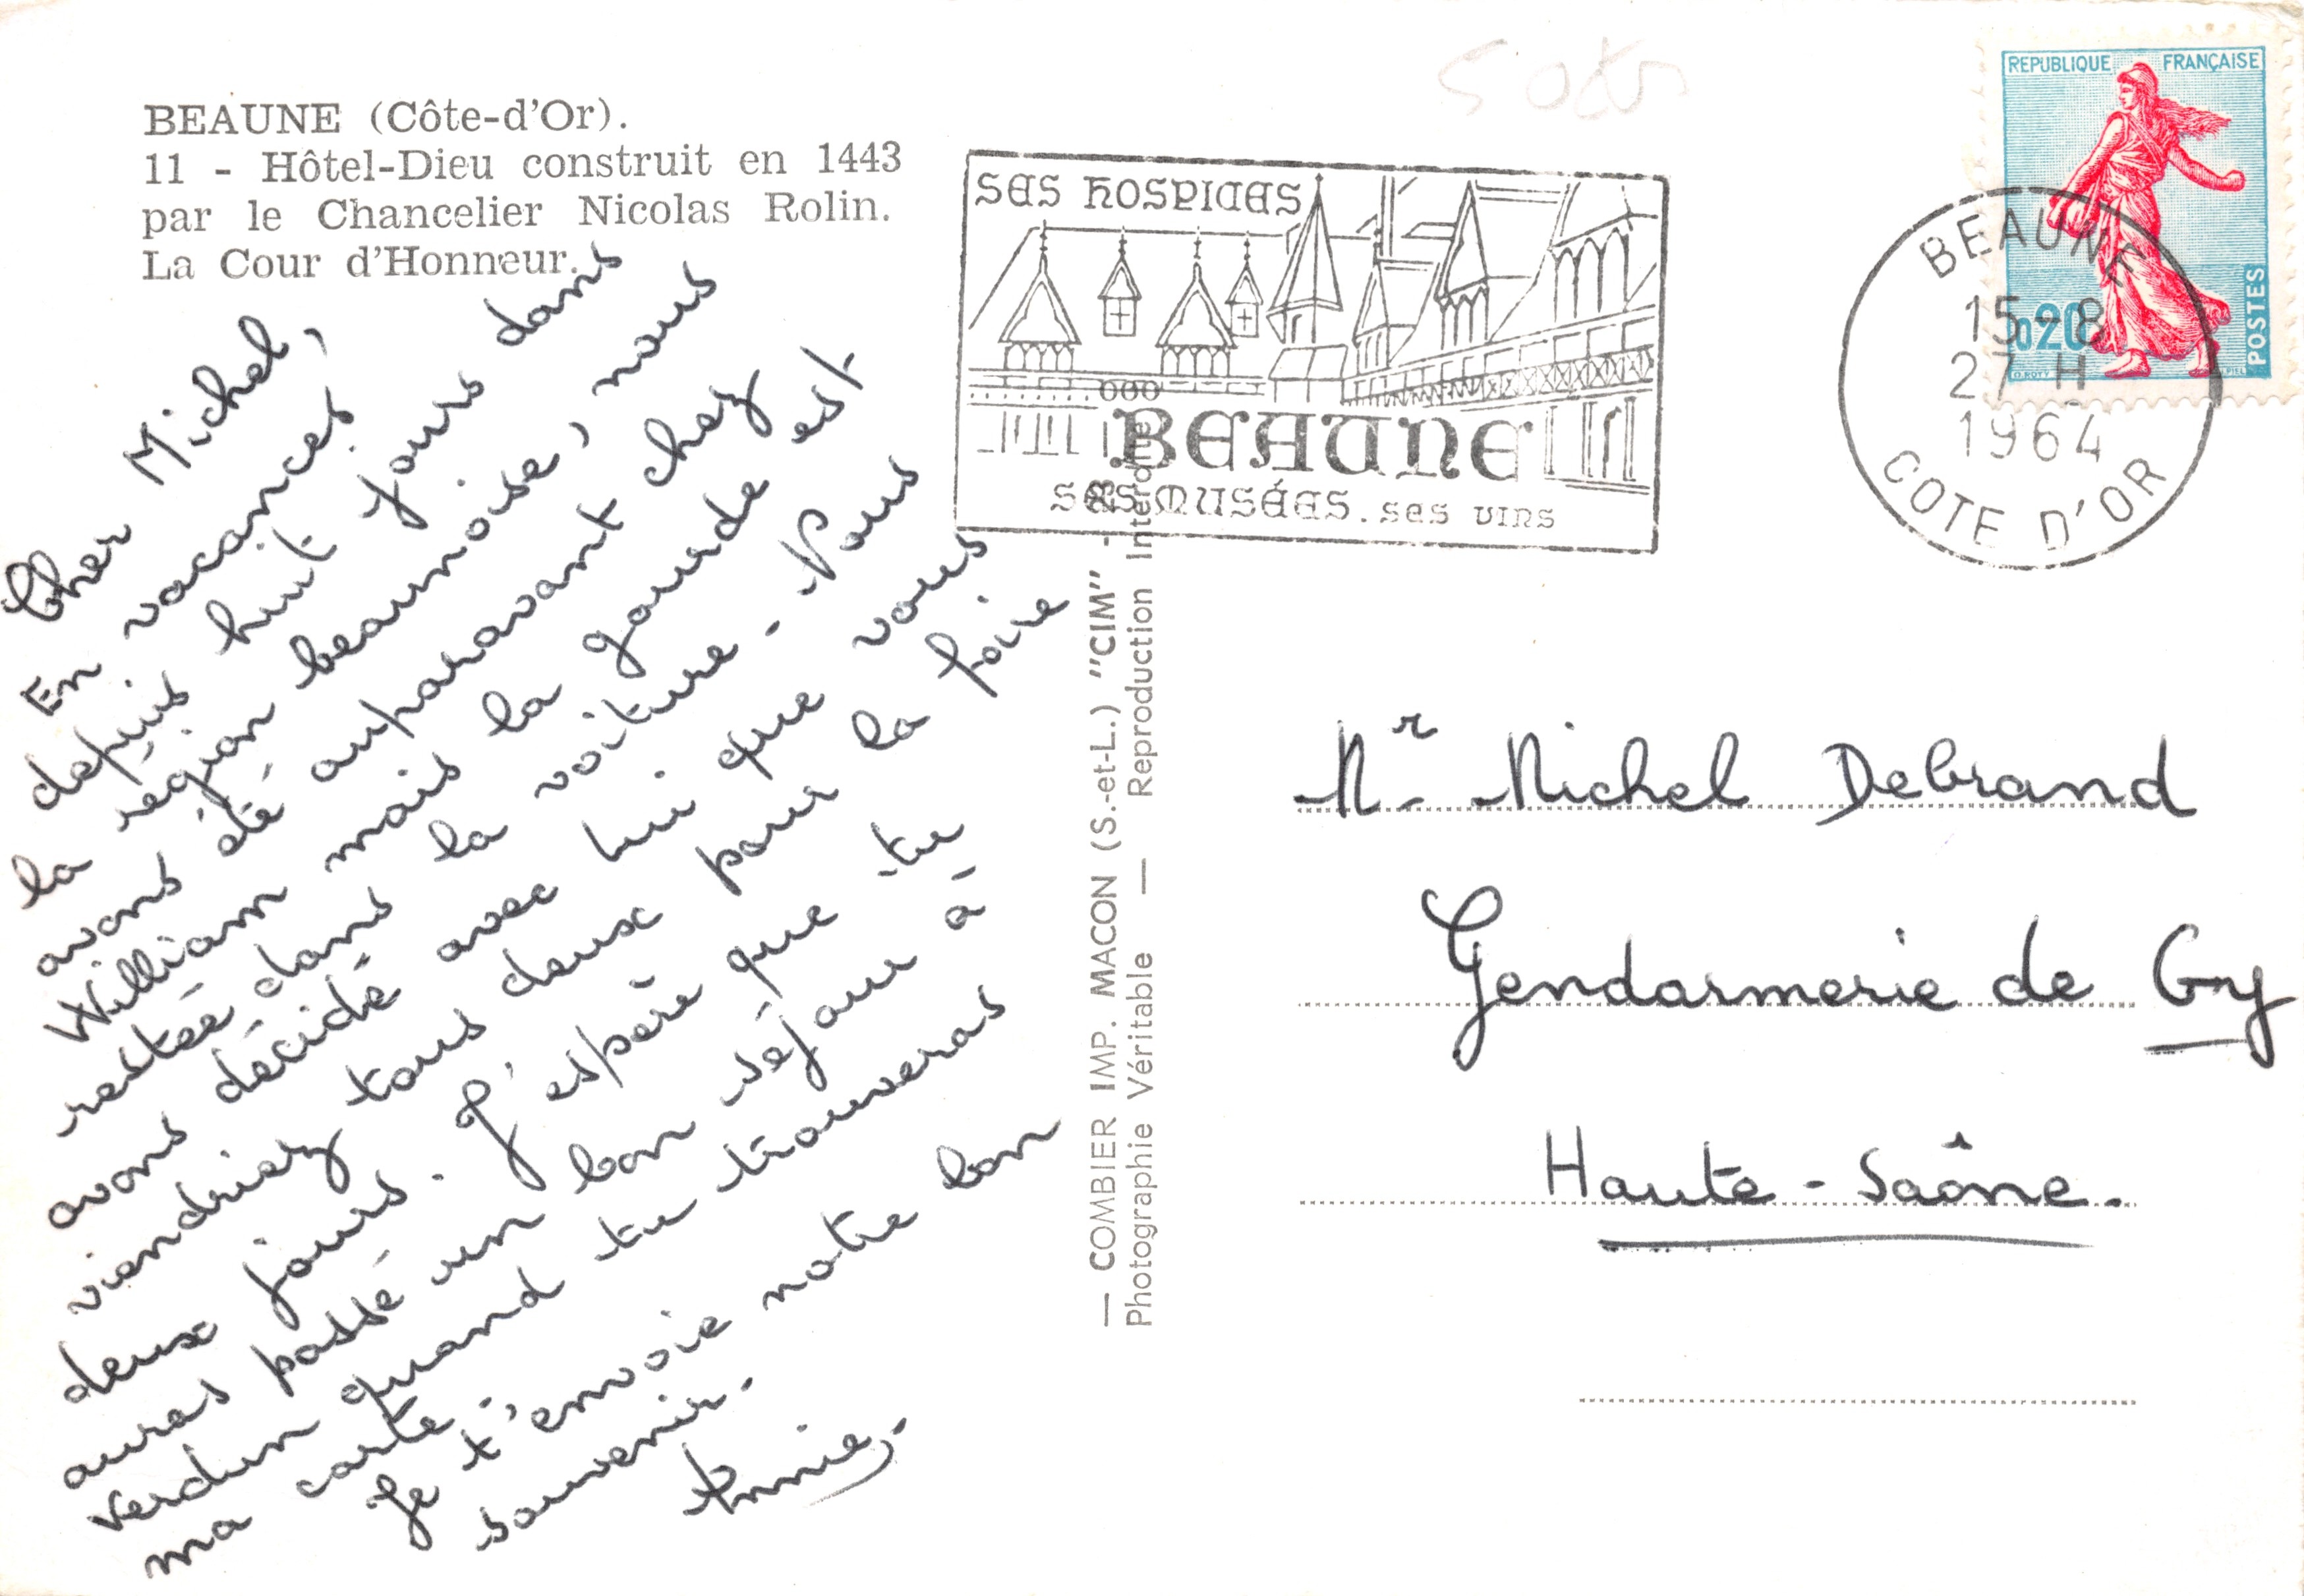 BEAUNE (Côte-d'Or).
11 - Hôtel-Dieu construit en 1443
par le Chancelier Nicolas Rolin.
La Cour d'Honneur.
Cher Michel,
En vacances
depuis huit jours dans
la région beaunoise, nous
avons été auparavant chez
William mais la gourde est
restée dans la voiture. Nous
avons décidé avec lui que vous
viendriez tous deux pour la foire
deux jours. J'espère que tu
auras passé un bon séjour à
Verdun quand tu trouveras
ma carte.
Je t'envoie notre bon
souvenir.
Annie.
— COMBIER IMP. MACON (S.-et-L.) "CIM" -
Photographie Véritable — Reproduction Interdite
SES HOSPICES
BEAUNE
SES MUSÉES. SES VINS
REPUBLIQUE FRANÇAISE
0,20
POSTES
O. ROTY PIEL
BEAUNE
15-8
27 H
1964
COTE D'OR
Mr. Michel Debrand
Gendarmerie de Gy
Haute-Saône.